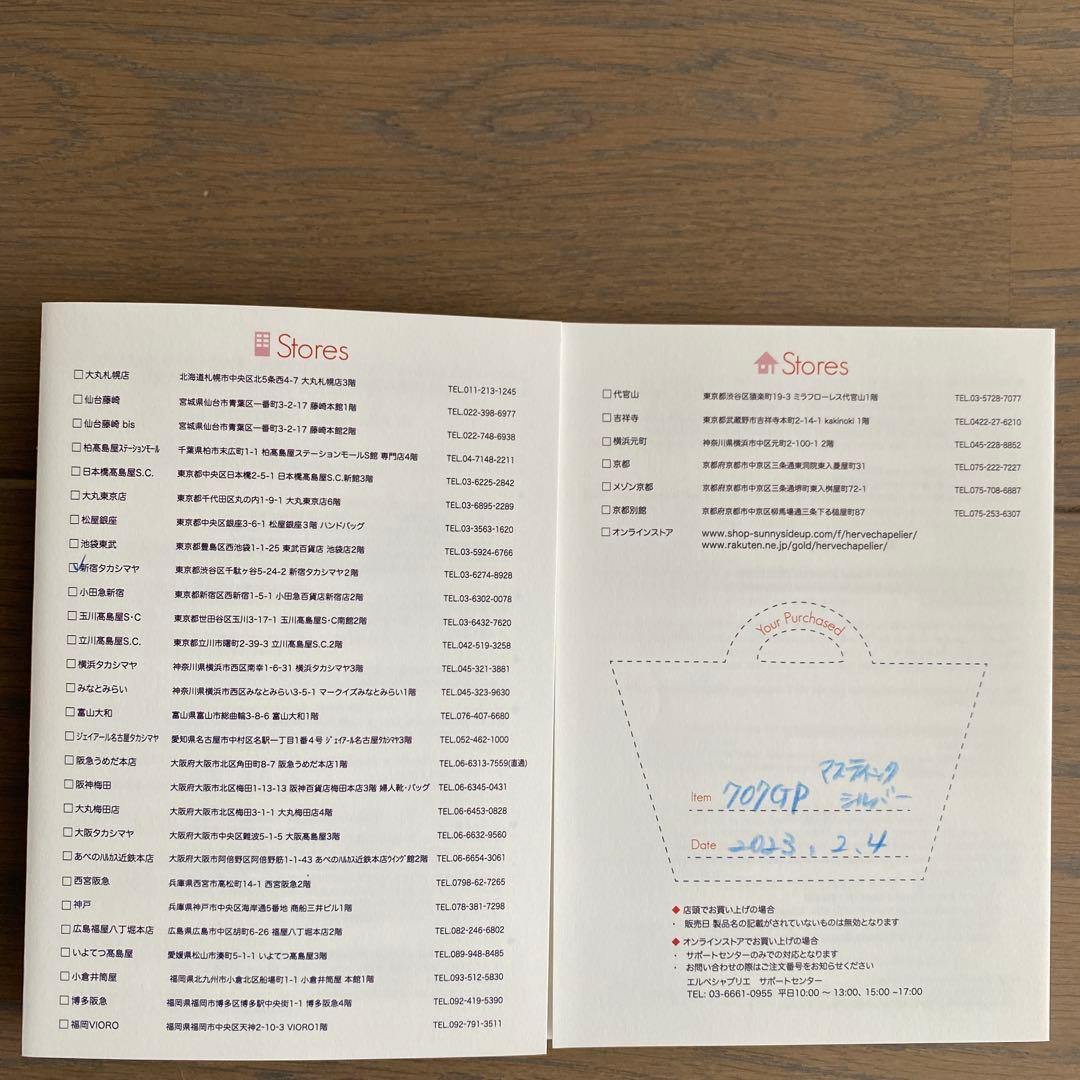 Stores
□大丸札幌店 北海道札幌市中央区北5条西4-7 大丸札幌店3階 TEL.011-213-1245
□仙台藤崎 宮城県仙台市青葉区一番町3-2-17 藤崎本館1階 TEL.022-398-6977
□仙台藤崎 bis 宮城県仙台市青葉区一番町3-2-17 藤崎本館2階 TEL.022-748-6938
□柏髙島屋ステーションモール 千葉県柏市末広町1-1 柏髙島屋ステーションモールS館 専門店4階 TEL.04-7148-2211
□日本橋髙島屋S.C. 東京都中央区日本橋2-5-1 日本橋髙島屋S.C.新館3階 TEL.03-6225-2842
□大丸東京店 東京都千代田区丸の内1-9-1 大丸東京店6階 TEL.03-6895-2289
□松屋銀座 東京都中央区銀座3-6-1 松屋銀座3階 ハンドバッグ TEL.03-3563-1620
□池袋東武 東京都豊島区西池袋1-1-25 東武百貨店 池袋店2階 TEL.03-5924-6766
☑新宿タカシマヤ 東京都渋谷区千駄ヶ谷5-24-2 新宿タカシマヤ2階 TEL.03-6274-8928
□小田急新宿 東京都新宿区西新宿1-5-1 小田急百貨店新宿店2階 TEL.03-6302-0078
□玉川髙島屋S・C 東京都世田谷区玉川3-17-1 玉川髙島屋S・C南館2階 TEL.03-6432-7620
□立川髙島屋S.C. 東京都立川市曙町2-39-3 立川髙島屋S.C.2階 TEL.042-519-3258
□横浜タカシマヤ 神奈川県横浜市西区南幸1-6-31 横浜タカシマヤ3階 TEL.045-321-3881
□みなとみらい 神奈川県横浜市西区みなとみらい3-5-1 マークイズみなとみらい1階 TEL.045-323-9630
□富山大和 富山県富山市総曲輪3-8-6 富山大和1階 TEL.076-407-6680
□ジェイアール名古屋タカシマヤ 愛知県名古屋市中村区名駅一丁目1番4号 ジェイアール名古屋タカシマヤ3階 TEL.052-462-1000
□阪急うめだ本店 大阪府大阪市北区角田町8-7 阪急うめだ本店1階 TEL.06-6313-7559(直通)
□阪神梅田 大阪府大阪市北区梅田1-13-13 阪神百貨店梅田本店3階 婦人靴・バッグ TEL.06-6345-0431
□大丸梅田店 大阪府大阪市北区梅田3-1-1 大丸梅田店4階 TEL.06-6453-0828
□大阪タカシマヤ 大阪府大阪市中央区難波5-1-5 大阪髙島屋3階 TEL.06-6632-9560
□あべのハルカス近鉄本店 大阪府大阪市阿倍野区阿倍野筋1-1-43 あべのハルカス近鉄本店ウイング館2階 TEL.06-6654-3061
□西宮阪急 兵庫県西宮市高松町14-1 西宮阪急2階 TEL.0798-62-7265
□神戸 兵庫県神戸市中央区海岸通5番地 商船三井ビル1階 TEL.078-381-7298
□広島福屋八丁堀本店 広島県広島市中区胡町6-26 福屋八丁堀本店2階 TEL.082-246-6802
□いよてつ髙島屋 愛媛県松山市湊町5-1-1 いよてつ髙島屋3階 TEL.089-948-8485
□小倉井筒屋 福岡県北九州市小倉北区船場町1-1 小倉井筒屋 本館1階 TEL.093-512-5830
□博多阪急 福岡県福岡市博多区博多駅中央街1-1 博多阪急4階 TEL.092-419-5390
□福岡VIORO 福岡県福岡市中央区天神2-10-3 VIORO1階 TEL.092-791-3511
Stores
□代官山 東京都渋谷区猿楽町19-3 ミラフローレス代官山1階 TEL.03-5728-7077
□吉祥寺 東京都武蔵野市吉祥寺本町2-14-1 kakinoki 1階 TEL.0422-27-6210
□横浜元町 神奈川県横浜市中区元町2-100-1 2階 TEL.045-228-8852
□京都 京都府京都市中京区三条通東洞院東入菱屋町31 TEL.075-222-7227
□メゾン京都 京都府京都市中京区三条通堺町東入桝屋町72-1 TEL.075-708-6887
□京都別館 京都府京都市中京区柳馬場通三条下る槌屋町87 TEL.075-253-6307
□オンラインストア www.shop-sunnysideup.com/f/hervechapelier/
www.rakuten.ne.jp/gold/hervechapelier/
Your Purchased
マスティック
Item 707GP シルバー
Date 2023.2.4
◆店頭でお買い上げの場合
・ 販売日 製品名の記載がされていないものは無効となります
◆オンラインストアでお買い上げの場合
・ サポートセンターのみでの対応となります
・ お問い合わせの際はご注文番号をお知らせください
エルベシャプリエ サポートセンター
TEL: 03-6661-0955 平日10:00 ～ 13:00、15:00 ~17:00